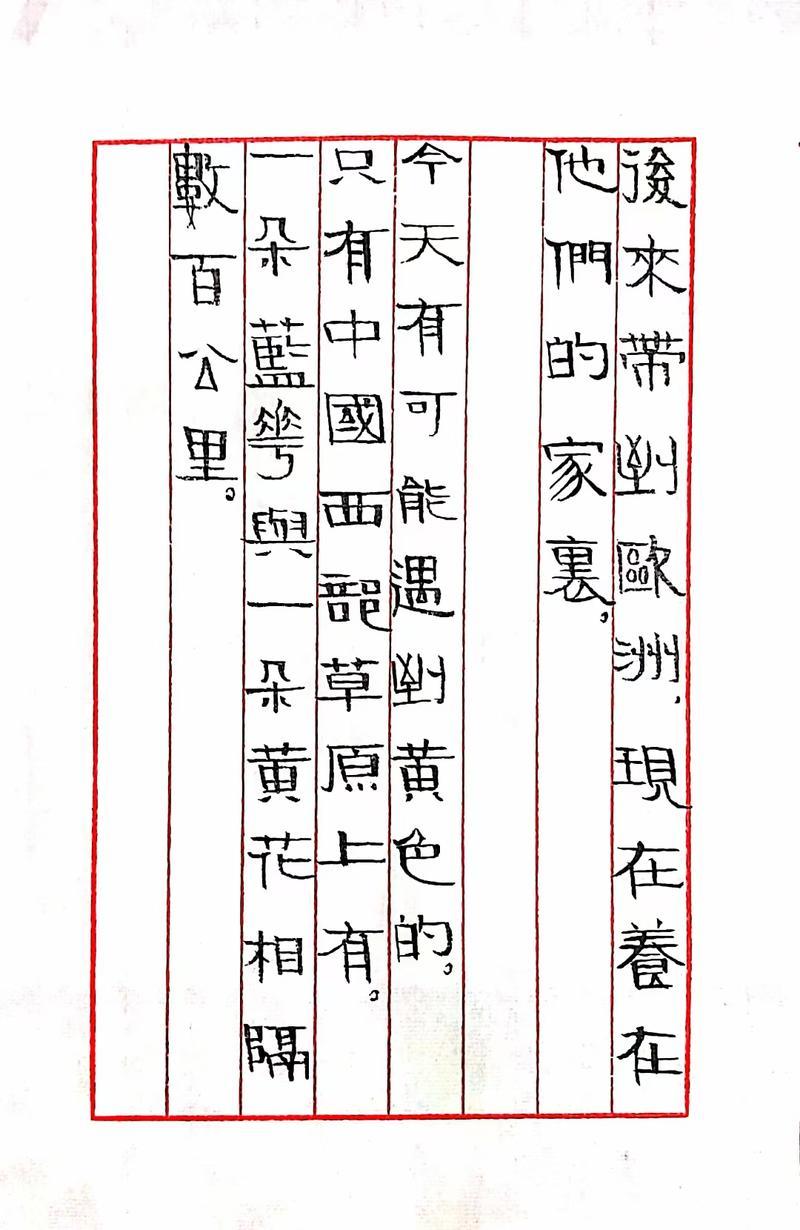 後來帶到歐洲，現在養在
他們的家裏，
今天有可能遇到黃色的。
只有中國西部草原上有。
一朵藍華與一朵黃花相隔
數百公里。